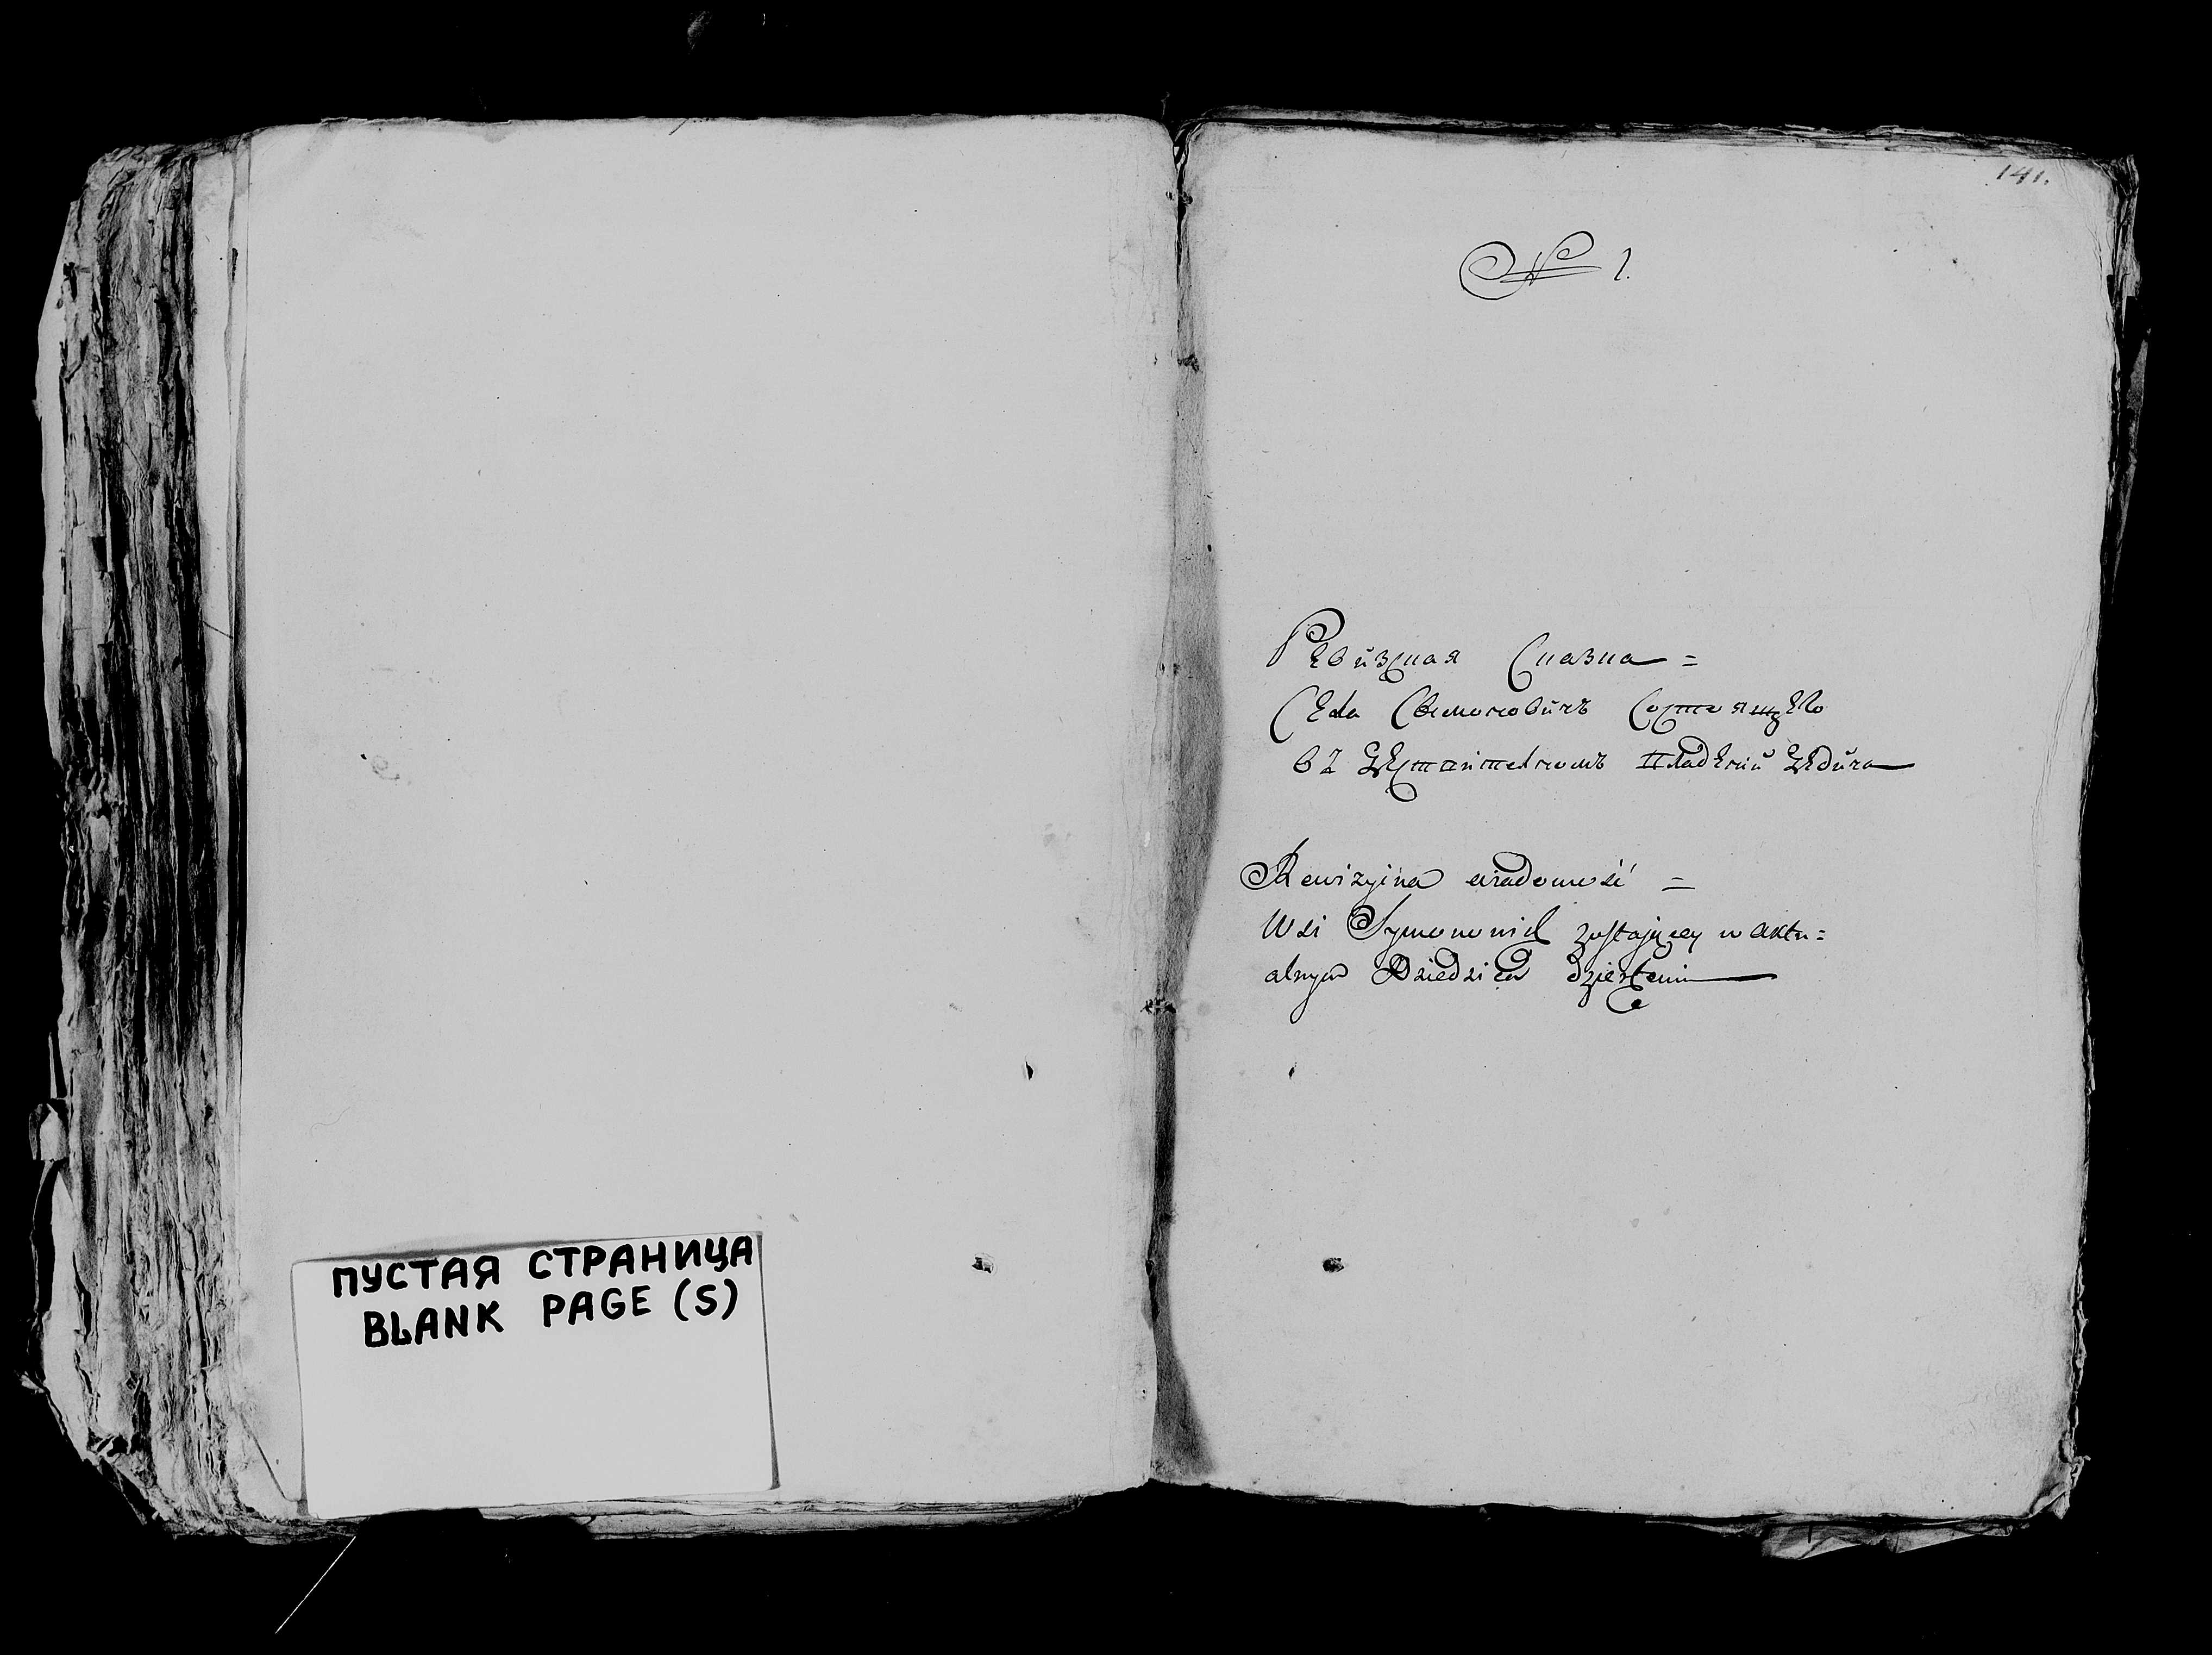 ПУСТАЯ СТРАНИЦА
BLANK PAGE (S)
141.
№ 1.
Ревизская Сказка =
Села Симоновичъ Состоящего
въ владении
Rewizyina wiadomość =
Wsi Symonowicz zostaiącey w aktu=
alnym Dziedzica dzierżeniu